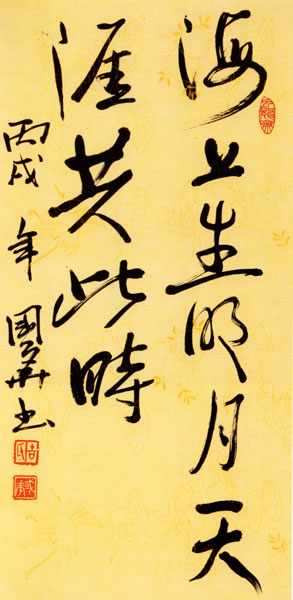 海上生明月天
涯共此時
丙戌年國華书